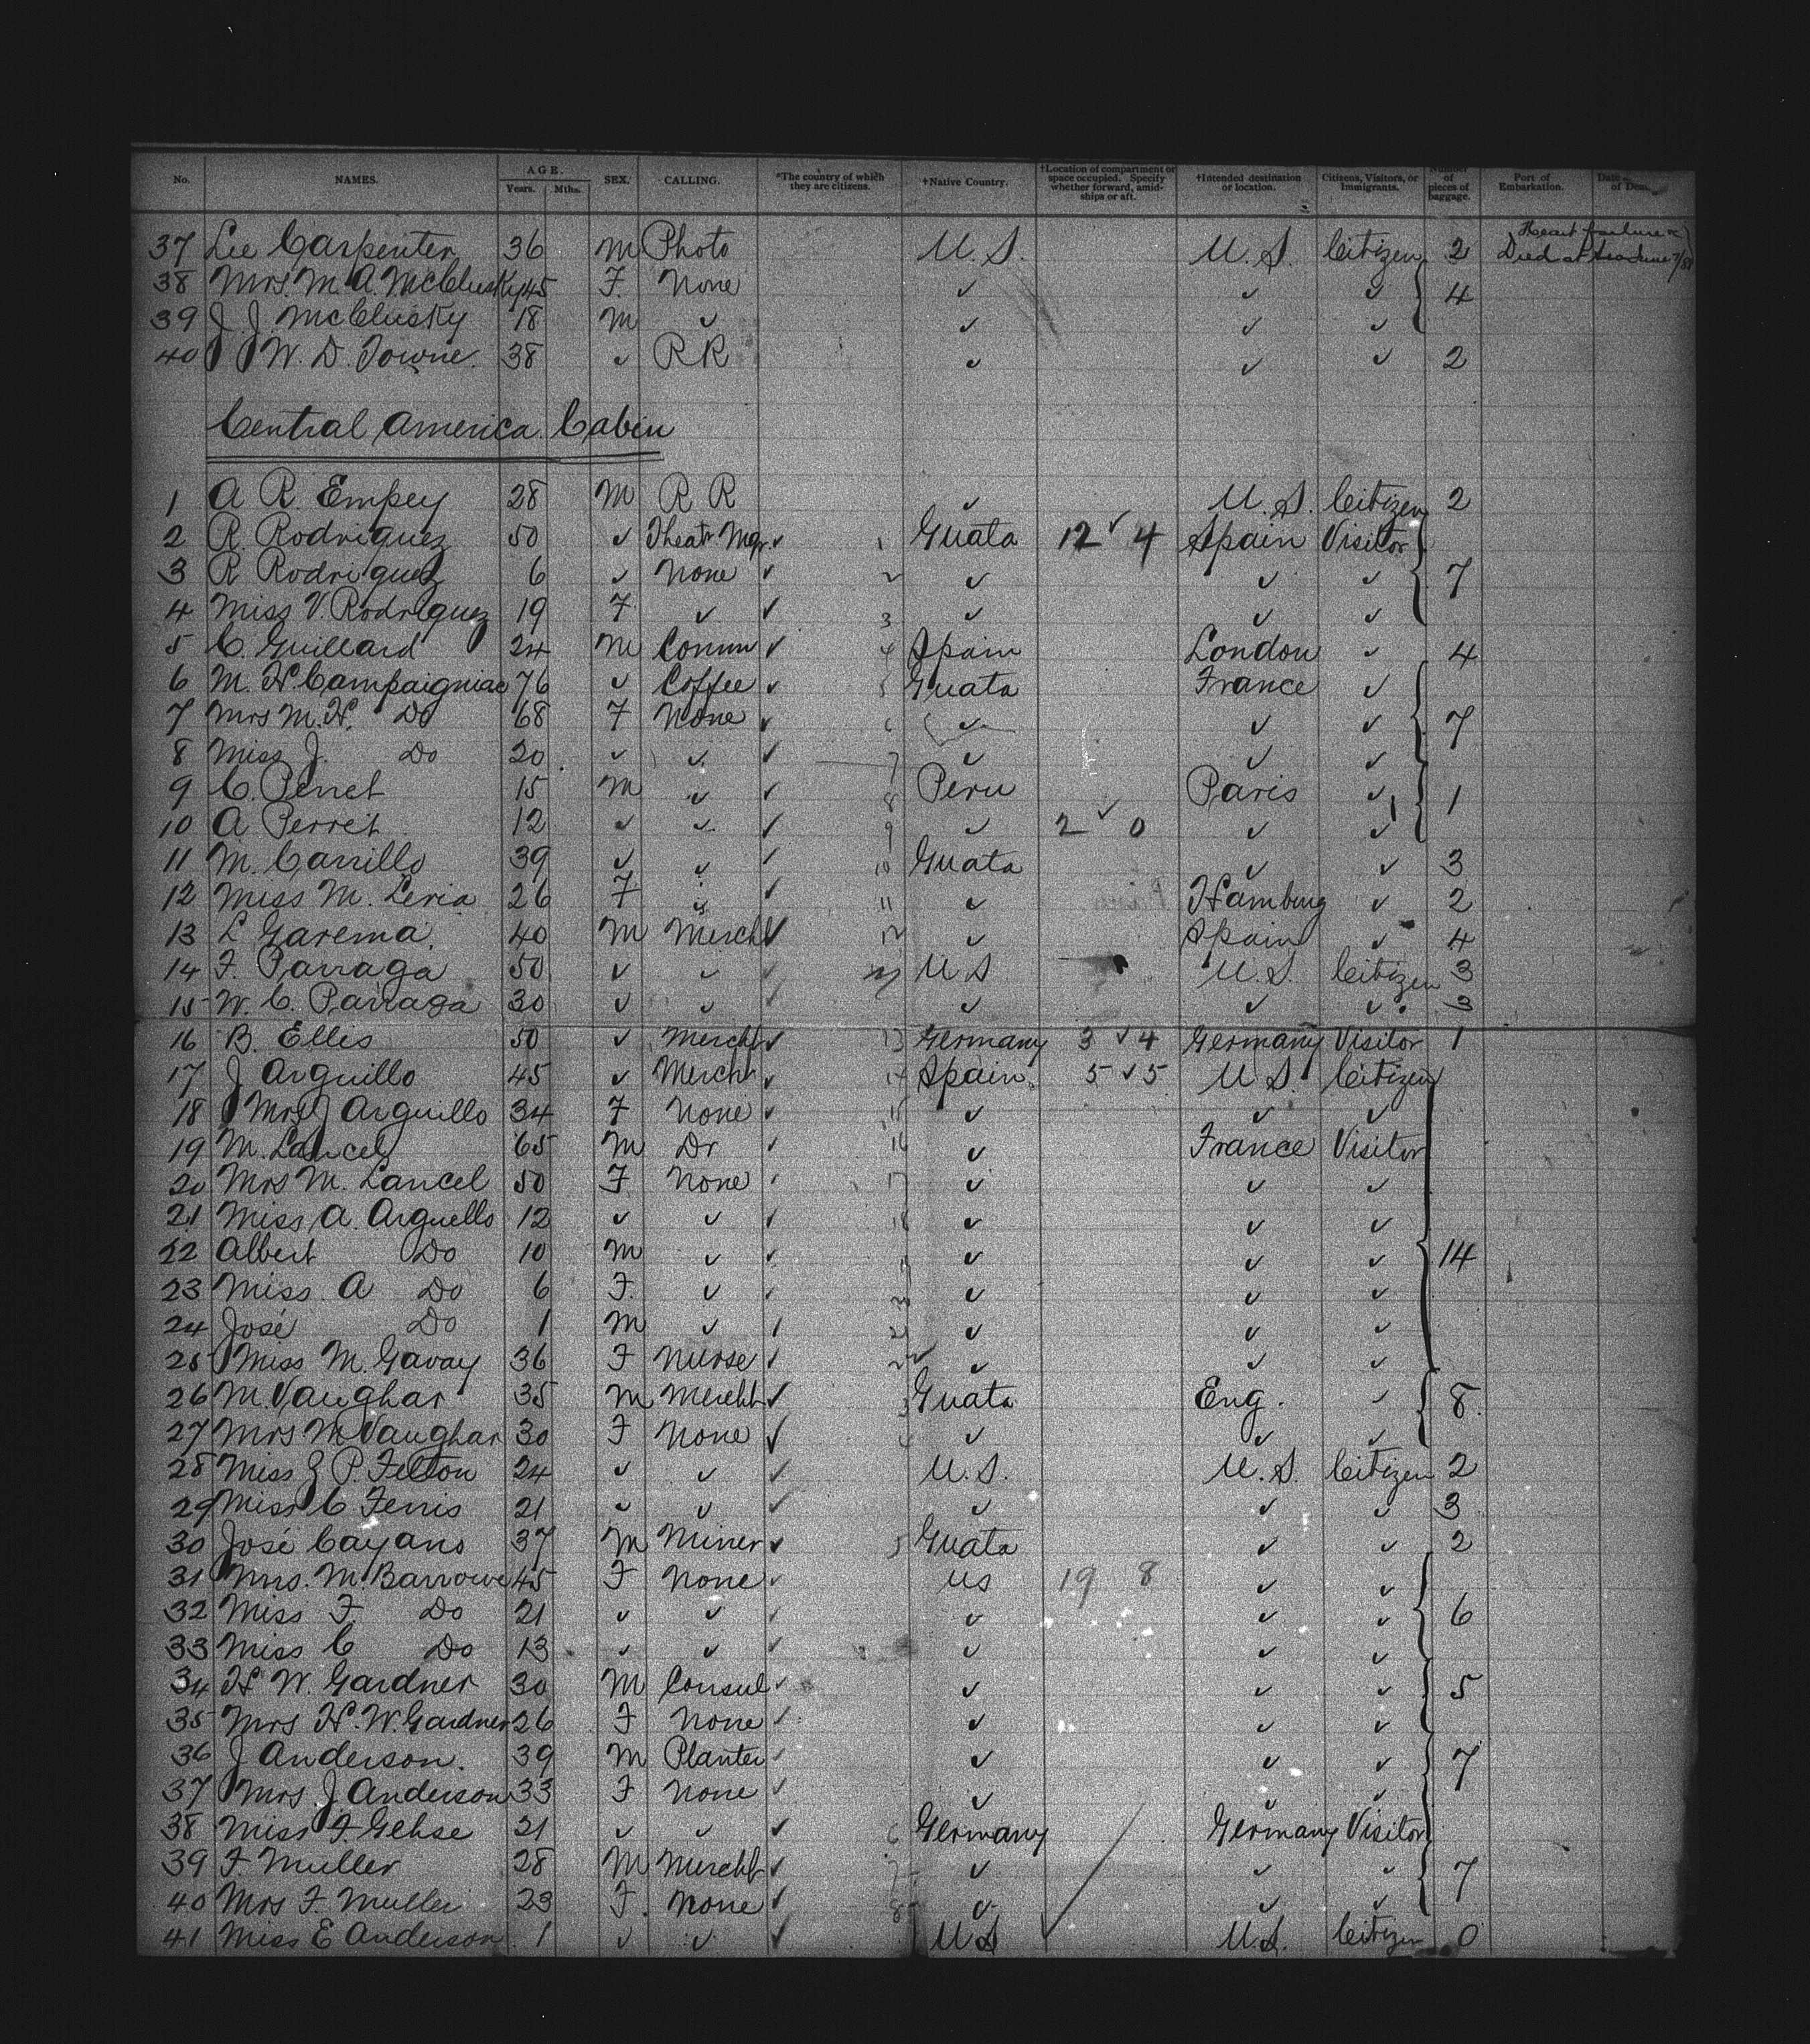 No. NAMES. AGE. Years. Mths. SEX. CALLING. *The country of which they are citizens. †Native Country. †Location of compartment or space occupied. Specify whether forward, amidships or aft. †Intended destination or location. Citizens, Visitors, or Immigrants. Number of pieces of baggage. Port of Embarkation. Date
37 Lee Carpenter 36 M Photo U.S. U.S. Citizen 2 Heart failure Died at
38 Mrs. M A. McClusky 45 F. None ✓ ✓ ✓ 4
39 J. J. McClusky 18 M ✓ ✓ ✓ ✓
40 W. D. Towne. 38 ✓ RR ✓ ✓ ✓ 2
Central America Cabin
1 A R. Empey 28 M R R ✓ U.S. Citizen 2
2 R. Rodriguez 50 ✓ Theatr Mgr ✓ 1 Guata 12 ✓ 4 Spain Visitor
3 R Rodriguez 6 ✓ None ✓ 2 ✓ ✓ ✓ 7
4 Miss V. Rodriguez 19 F ✓ ✓ 3 ✓ ✓ ✓
5 C. Guillard 24 M Comm ✓ 4 Spain London ✓ 4
6 M. H Campaigniac 76 ✓ Coffee ✓ 5 Guata France ✓
7 Mrs M. H. Do 68 F None ✓ 6 ✓ ✓ ✓ 7
8 Miss J. Do 20 ✓ ✓ ✓ 7 ✓ ✓ ✓
9 C. Perret 15 M ✓ ✓ 8 Peru Paris ✓ 1
10 A Perret 12 ✓ ✓ ✓ 9 ✓ 2 ✓ 0 ✓ ✓
11 M. Carrillo 39 ✓ ✓ ✓ 10 Guata ✓ ✓ 3
12 Miss M. Leria 26 F ✓ ✓ 11 ✓ Hamburg ✓ 2
13 L Garema. 40 M Mercht ✓ 12 ✓ Spain ✓ 4
14 F. Parraga 50 ✓ ✓ ✓ U S U.S. Citizen 3
15 W. C. Parraga 30 ✓ ✓ ✓ ✓ ✓ ✓ 3
16 B. Ellis 50 ✓ Mercht ✓ 13 Germany 3 ✓ 4 Germany Visitor 1
17 J Arguillo 45 ✓ Mercht ✓ 14 Spain. 5 ✓ 5 U S. Citizen
18 Mrs J Arguillo 34 F None ✓ 15 ✓ ✓ ✓
19 M. Lancel 65 M Dr ✓ 16 ✓ France Visitor
20 Mrs M. Lancel 50 F None ✓ 17 ✓ ✓ ✓
21 Miss A. Arguello 12 ✓ ✓ ✓ 18 ✓ ✓ ✓
22 Albert Do 10 M ✓ ✓ ✓ ✓ ✓ 14
23 Miss. A Do 6 F. ✓ ✓ ✓ ✓ ✓
24 José Do 1 M ✓ ✓ 21 ✓ ✓ ✓
25 Miss M. Gavay 36 F Nurse ✓ 22 ✓ ✓ ✓
26 M. Vaughar 35 M Mercht ✓ 3 Guata Eng. ✓ 8.
27 Mrs M Vaughar 30 F None ✓ 4 ✓ ✓ ✓
28 Miss J P. Felton 24 ✓ ✓ ✓ U.S. U.S. Citizen 2
29 Miss C Ferris 21 ✓ ✓ ✓ ✓ ✓ ✓ 3
30 José Cayano 37 M Miner ✓ 5 Guata ✓ ✓ 2
31 Mrs. M. Barrowe 45 F None ✓ US 19 8 ✓ ✓
32 Miss F. Do 21 ✓ ✓ ✓ ✓ ✓ ✓ 6
33 Miss C Do 13 ✓ ✓ ✓ ✓ ✓ ✓
34 H W. Gardner 30 M Consul ✓ ✓ ✓ ✓ 5
35 Mrs H. W. Gardner 26 F None ✓ ✓ ✓ ✓
36 J Anderson. 39 M Planter ✓ ✓ ✓ ✓ 7
37 Mrs J Anderson 33 F None ✓ ✓ ✓ ✓
38 Miss F. Gehse 21 ✓ ✓ ✓ 6 Germany Germany Visitor
39 F Muller 28 M Mercht ✓ 7 ✓ ✓ ✓ 7
40 Mrs F. Muller 23 F. None ✓ 8 ✓ ✓ ✓
41 Miss E Anderson 1 ✓ ✓ ✓ U S U.S. Citizen 0